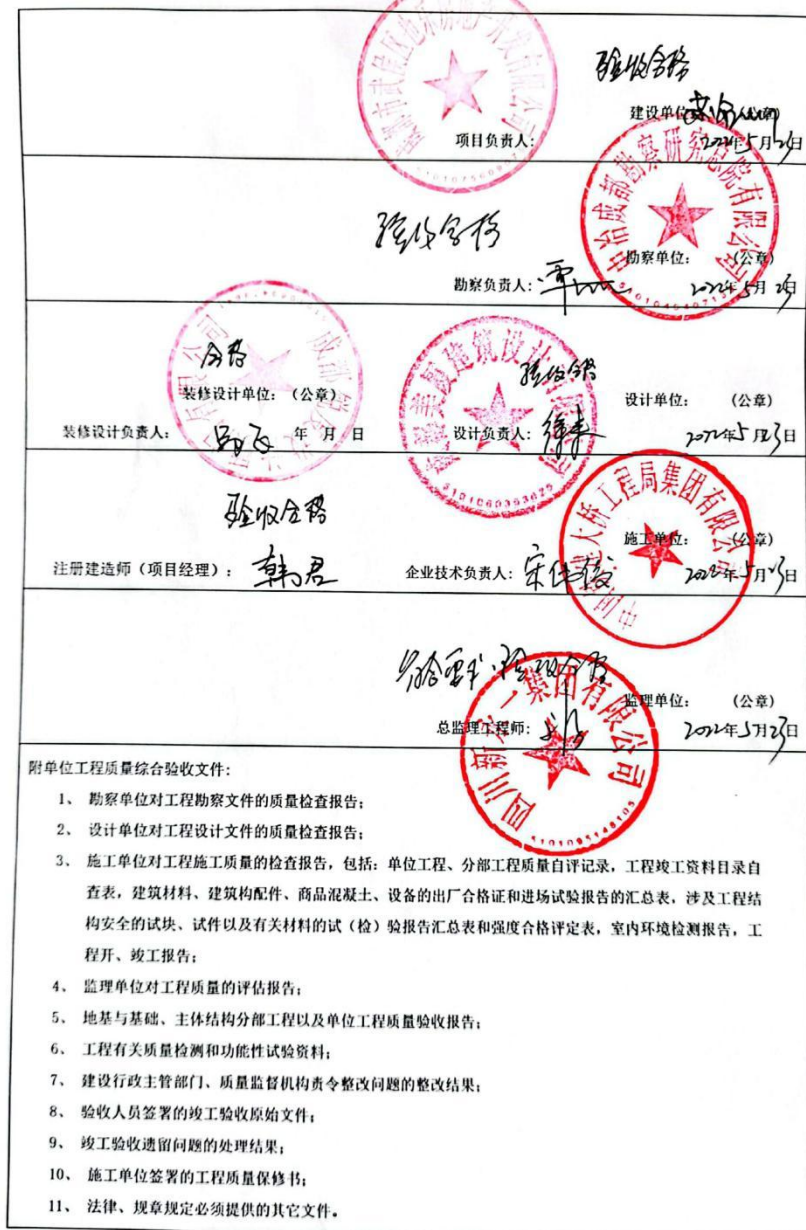 验收合格
建设单位: (公章)
项目负责人:
2022年5月23日
验收合格
勘察单位: (公章)
勘察负责人:
2022年5月23日
中冶成都勘察研究总院有限公司
合格
装修设计单位: (公章)
装修设计负责人:
年 月 日
验收合格
设计单位: (公章)
设计负责人:
2022年5月23日
5101060393675
验收合格
施工单位: (公章)
注册建造师(项目经理): 韩君
企业技术负责人:
2022年5月23日
监理单位: (公章)
总监理工程师:
2022年5月23日
附单位工程质量综合验收文件:
1、 勘察单位对工程勘察文件的质量检查报告;
2、 设计单位对工程设计文件的质量检查报告;
3、 施工单位对工程施工质量的检查报告,包括:单位工程、分部工程质量自评记录,工程竣工资料目录自
查表,建筑材料、建筑构配件、商品混凝土、设备的出厂合格证和进场试验报告的汇总表,涉及工程结
构安全的试块、试件以及有关材料的试(检)验报告汇总表和强度合格评定表,室内环境检测报告,工
程开、竣工报告;
4、 监理单位对工程质量的评估报告;
5、 地基与基础、主体结构分部工程以及单位工程质量验收报告;
6、 工程有关质量检测和功能性试验资料;
7、 建设行政主管部门、质量监督机构责令整改问题的整改结果;
8、 验收人员签署的竣工验收原始文件;
9、 竣工验收遗留问题的处理结果;
10、 施工单位签署的工程质量保修书;
11、 法律、规章规定必须提供的其它文件。